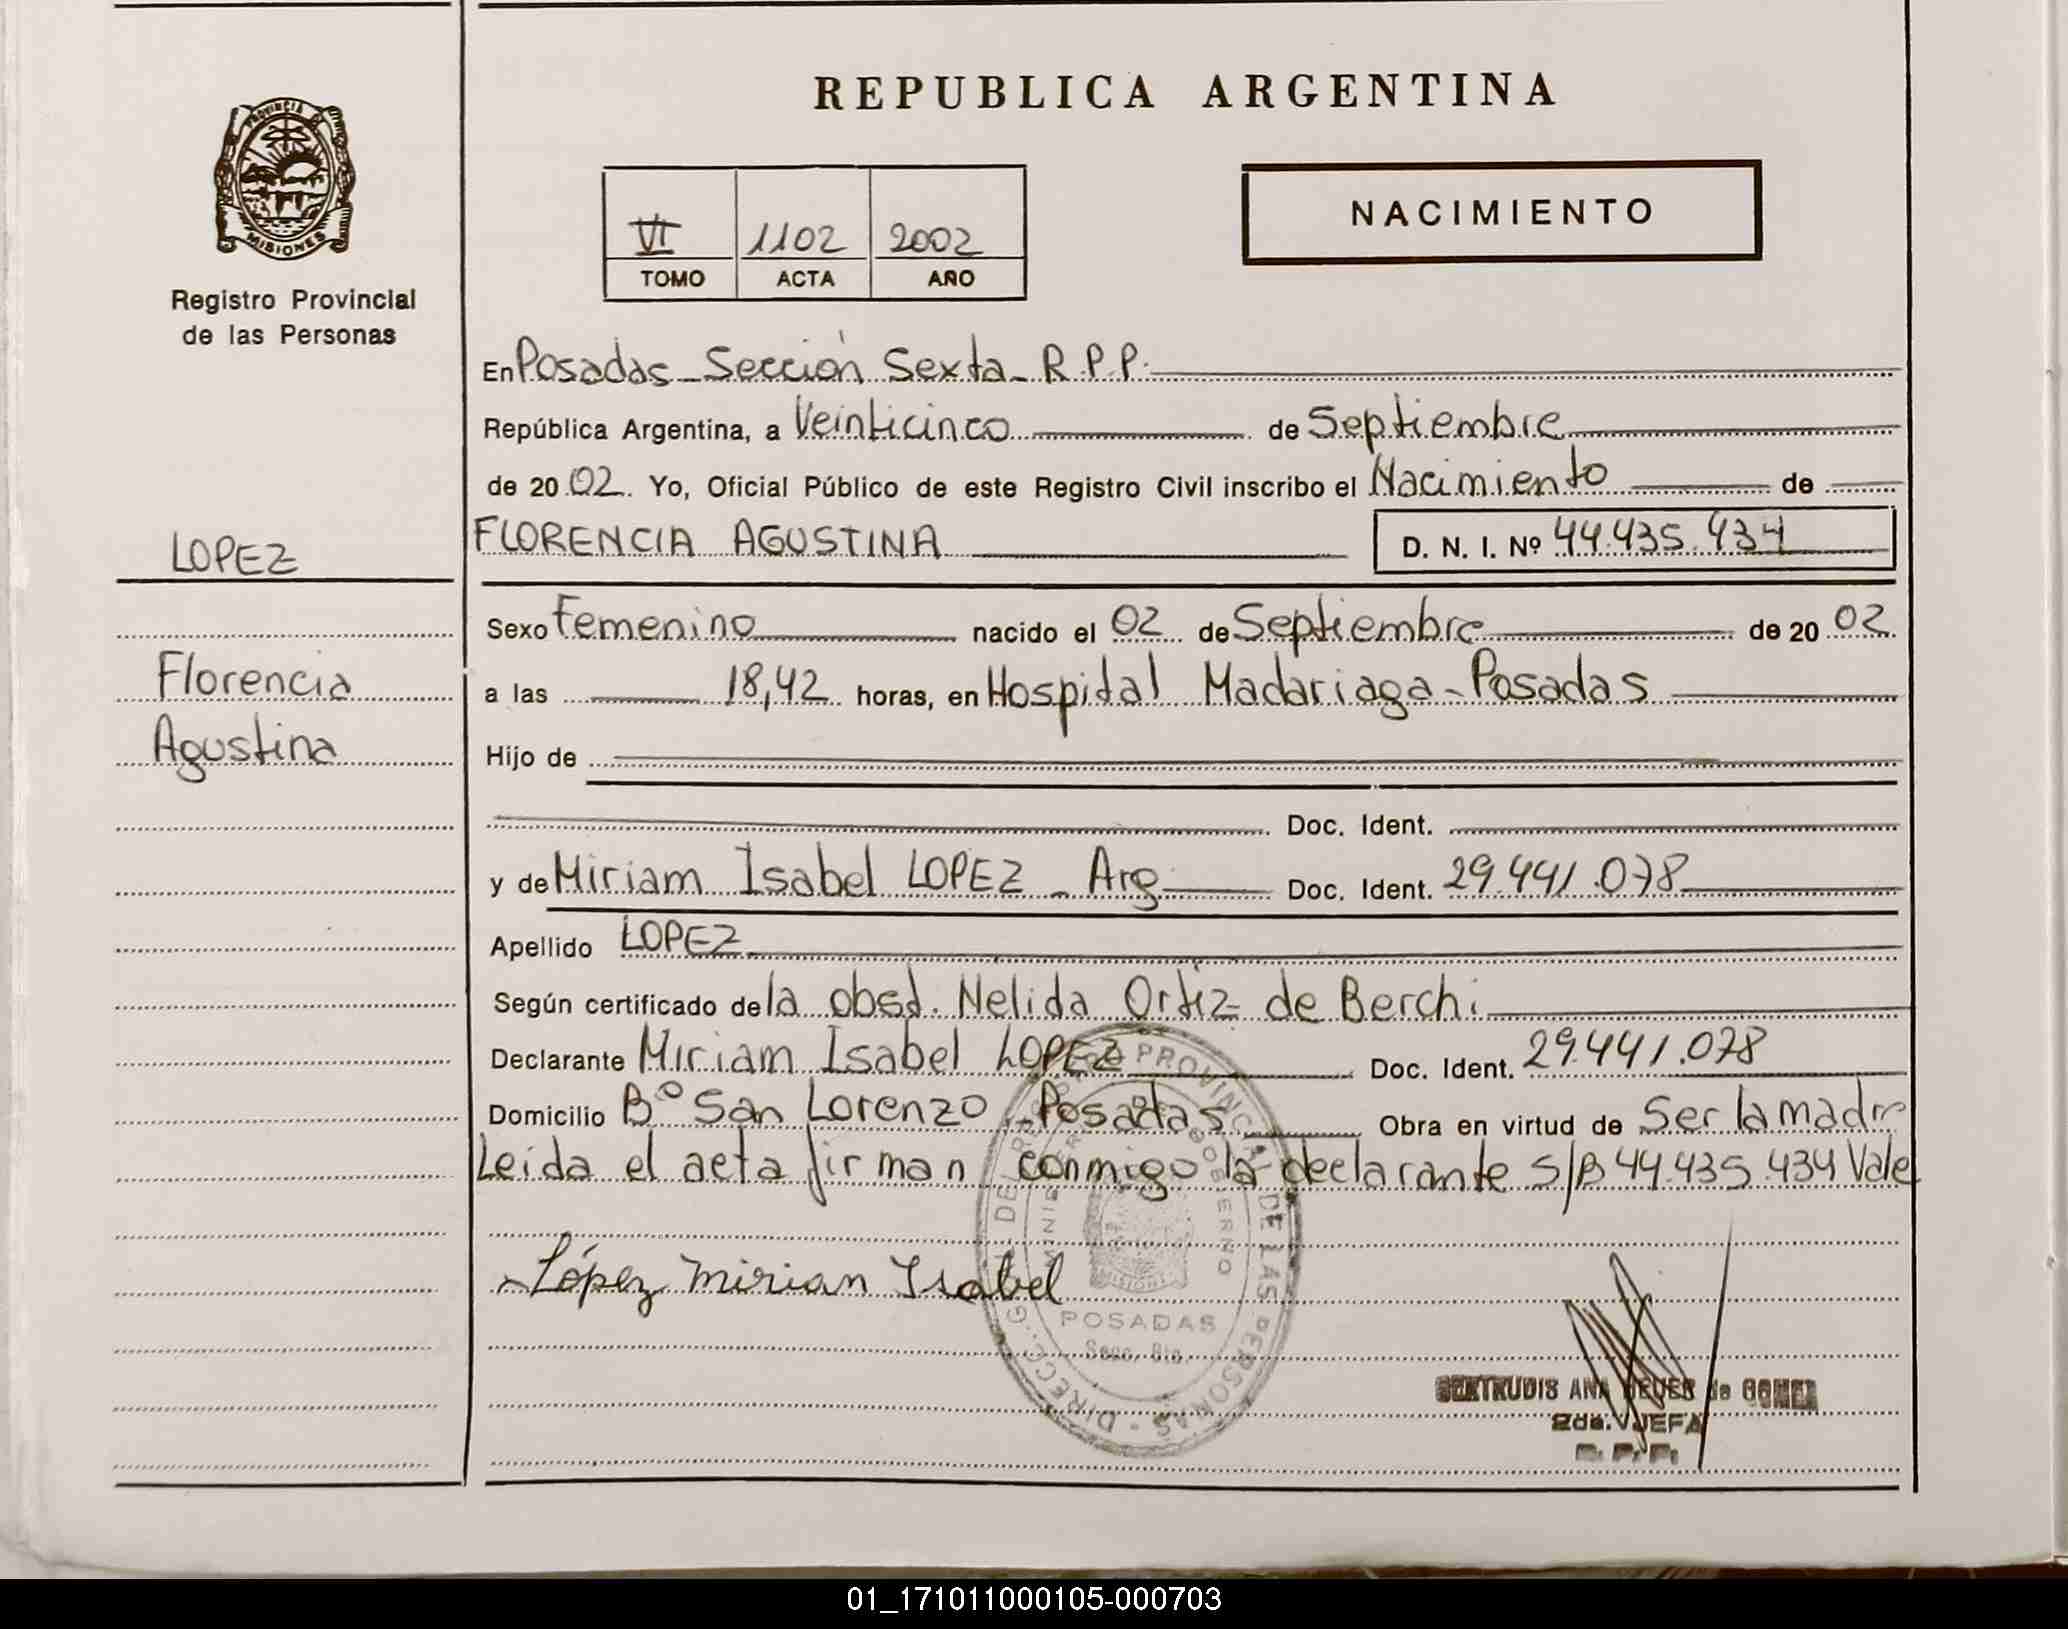 REPUBLICA ARGENTINA
PROVINCIA
MISIONES
Registro Provincial
de las Personas
VI 1102 2002
TOMO ACTA AÑO
NACIMIENTO
En Posadas - Sección Sexta - R.P.P.
República Argentina, a Veinticinco de Septiembre
de 2002. Yo, Oficial Público de este Registro Civil inscribo el Nacimiento de
LOPEZ
FLORENCIA AGUSTINA D. N. I. Nº 44.435.434
Sexo Femenino nacido el 02 de Septiembre de 2002
Florencia
a las 18,42 horas, en Hospital Madariaga - Posadas
Agustina
Hijo de
Doc. Ident.
y de Miriam Isabel LOPEZ - Arg Doc. Ident. 29.441.078
Apellido LOPEZ
Según certificado de la obst. Nelida Ortiz de Berchi
Declarante Miriam Isabel LOPEZ Doc. Ident. 29.441.078
Domicilio Bº San Lorenzo - Posadas Obra en virtud de Ser la madre
Leida el acta firman conmigo la declarante S/B 44.435.434 Vale
López Mirian Isabel
DIRECC. G DEL REG PROVINCIAL DE LAS PERSONAS
GOBIERNO
MISIONES
POSADAS
GERTRUDIS ANA de GOMEZ
2da. JEFA
R. P. P.
01_171011000105-000703